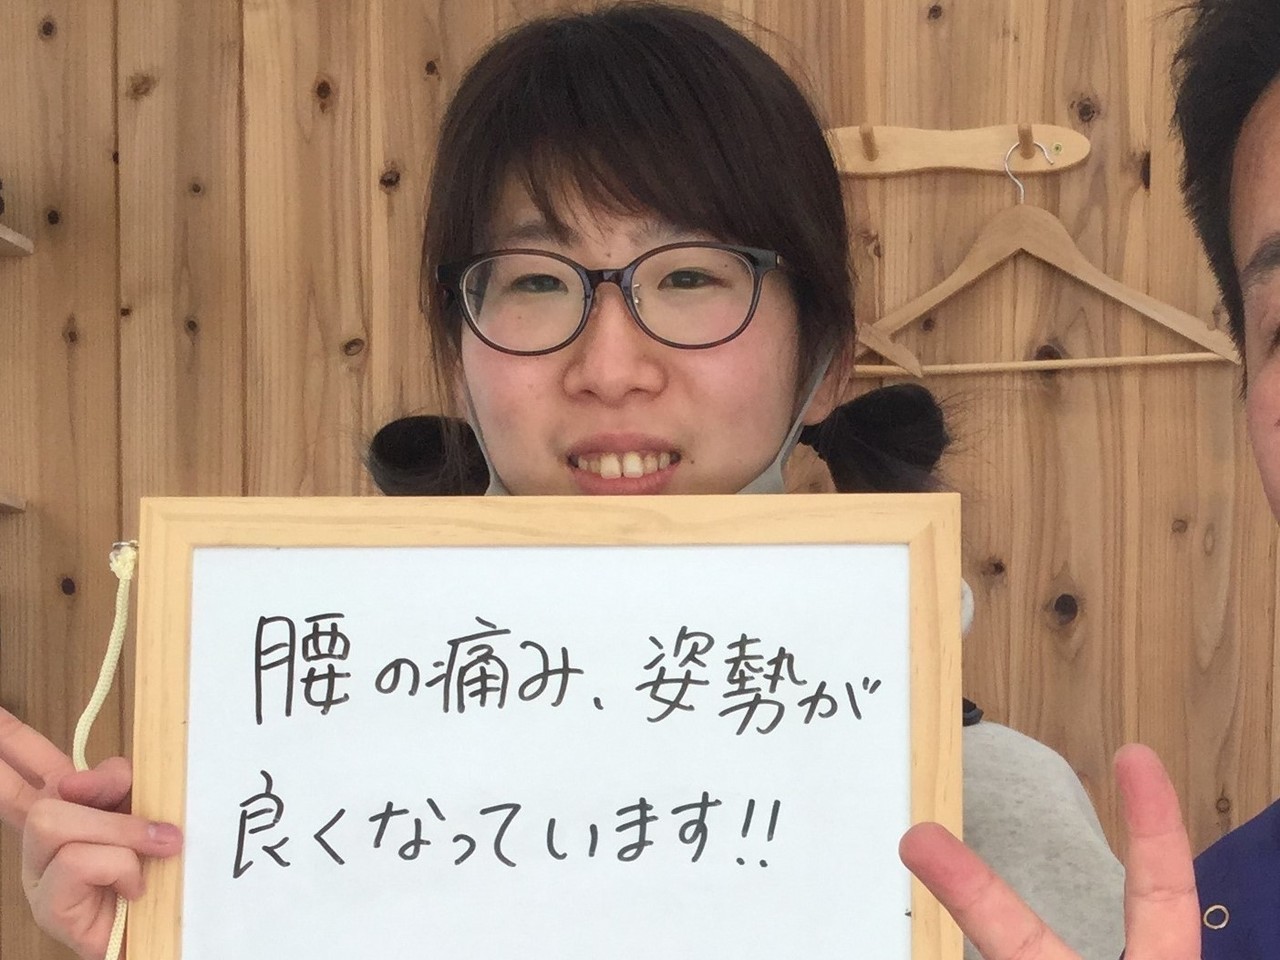 腰の痛み、姿勢が
良くなっています!!